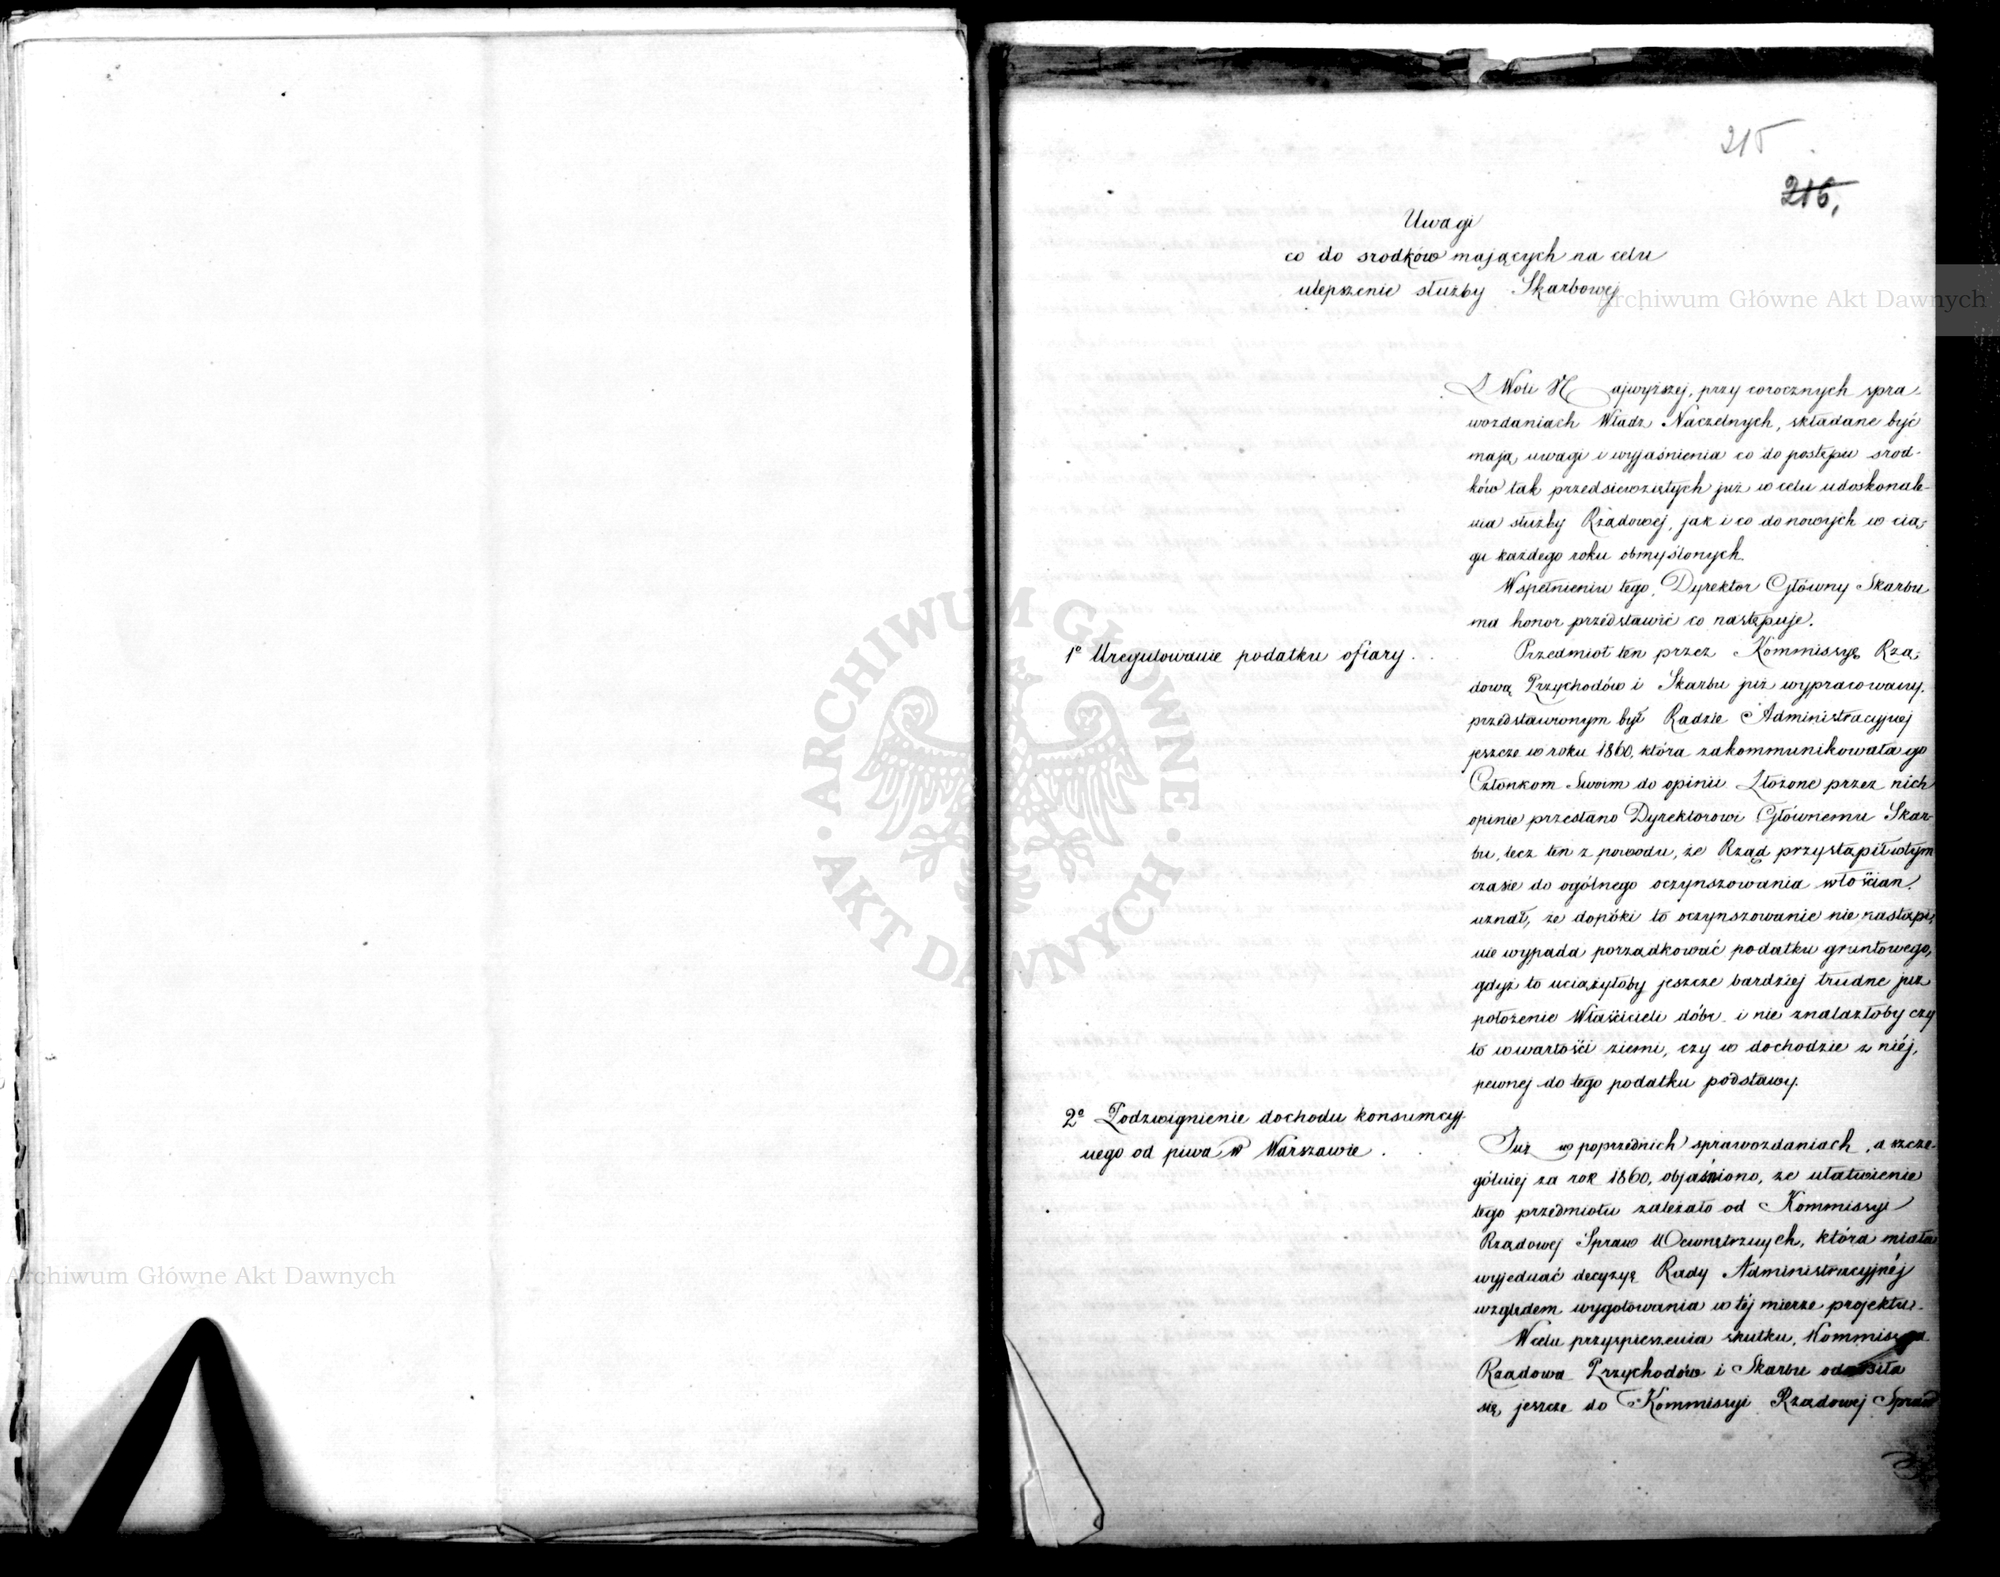 215
216,
Uwagi
co do srodków mających na celu
ulepszenie służby Skarbowej
Archiwum Główne Akt Dawnych
Z Woli Najwyższej, przy corocznych spra-
wozdaniach Władz Naczelnych, składane być
mają uwagi i wyjaśnienia co do postępu srod-
ków tak przedsiewziętych już w celu udoskonale-
nia służby Rządowej, jak i co do nowych w cią-
gu każdego roku obmyślonych.
W spełnieniu tego, Dyrektor Główny Skarbu
ma honor przedstawić co następuje.
1º Uregulowanie podatku ofiary.
Przedmiot ten przez Kommissyę Rzą-
dową Przychodów i Skarbu już wypracowany,
przedstawionym był Radzie Administracyjnej
jeszcze w roku 1860, która zakommunikowała go
Członkom swoim do opinii. Złożone przez nich
opinie przesłano Dyrektorowi Głównemu Skar-
bu, lecz ten z powodu, że Rząd przystąpił w tym
czasie do ogólnego oczynszowania włościan,
uznał, że dopóki to oczynszowanie nie nastąpi,
nie wypada porządkować podatku gruntowego,
gdyż to uciążyłoby jeszcze bardziej trudne już
położenie Właścicieli dóbr i nie znalazłoby czy
to w wartości ziemi, czy w dochodzie z niéj,
pewnej do tego podatku podstawy.
2º Podzwignienie dochodu konsumcyj-
nego od piwa w Warszawie.
Już w poprzednich sprawozdaniach, a szcze-
gólniej za rok 1860, objaśniono, że ułatwienie
tego przedmiotu zależało od Kommissyi
Rządowej Spraw Wewnętrznych, która miała
wyjednać decyzyę Rady Administracyjnéj
względem wygotowania w téj mierze projektu.
W celu przyspieszenia skutku, Kommissya
Rządowa Przychodów i Skarbu odnosiła
się jeszcze do Kommissyi Rządowej Spraw
ARCHIWUM GŁÓWNE
AKT DAWNYCH
Archiwum Główne Akt Dawnych